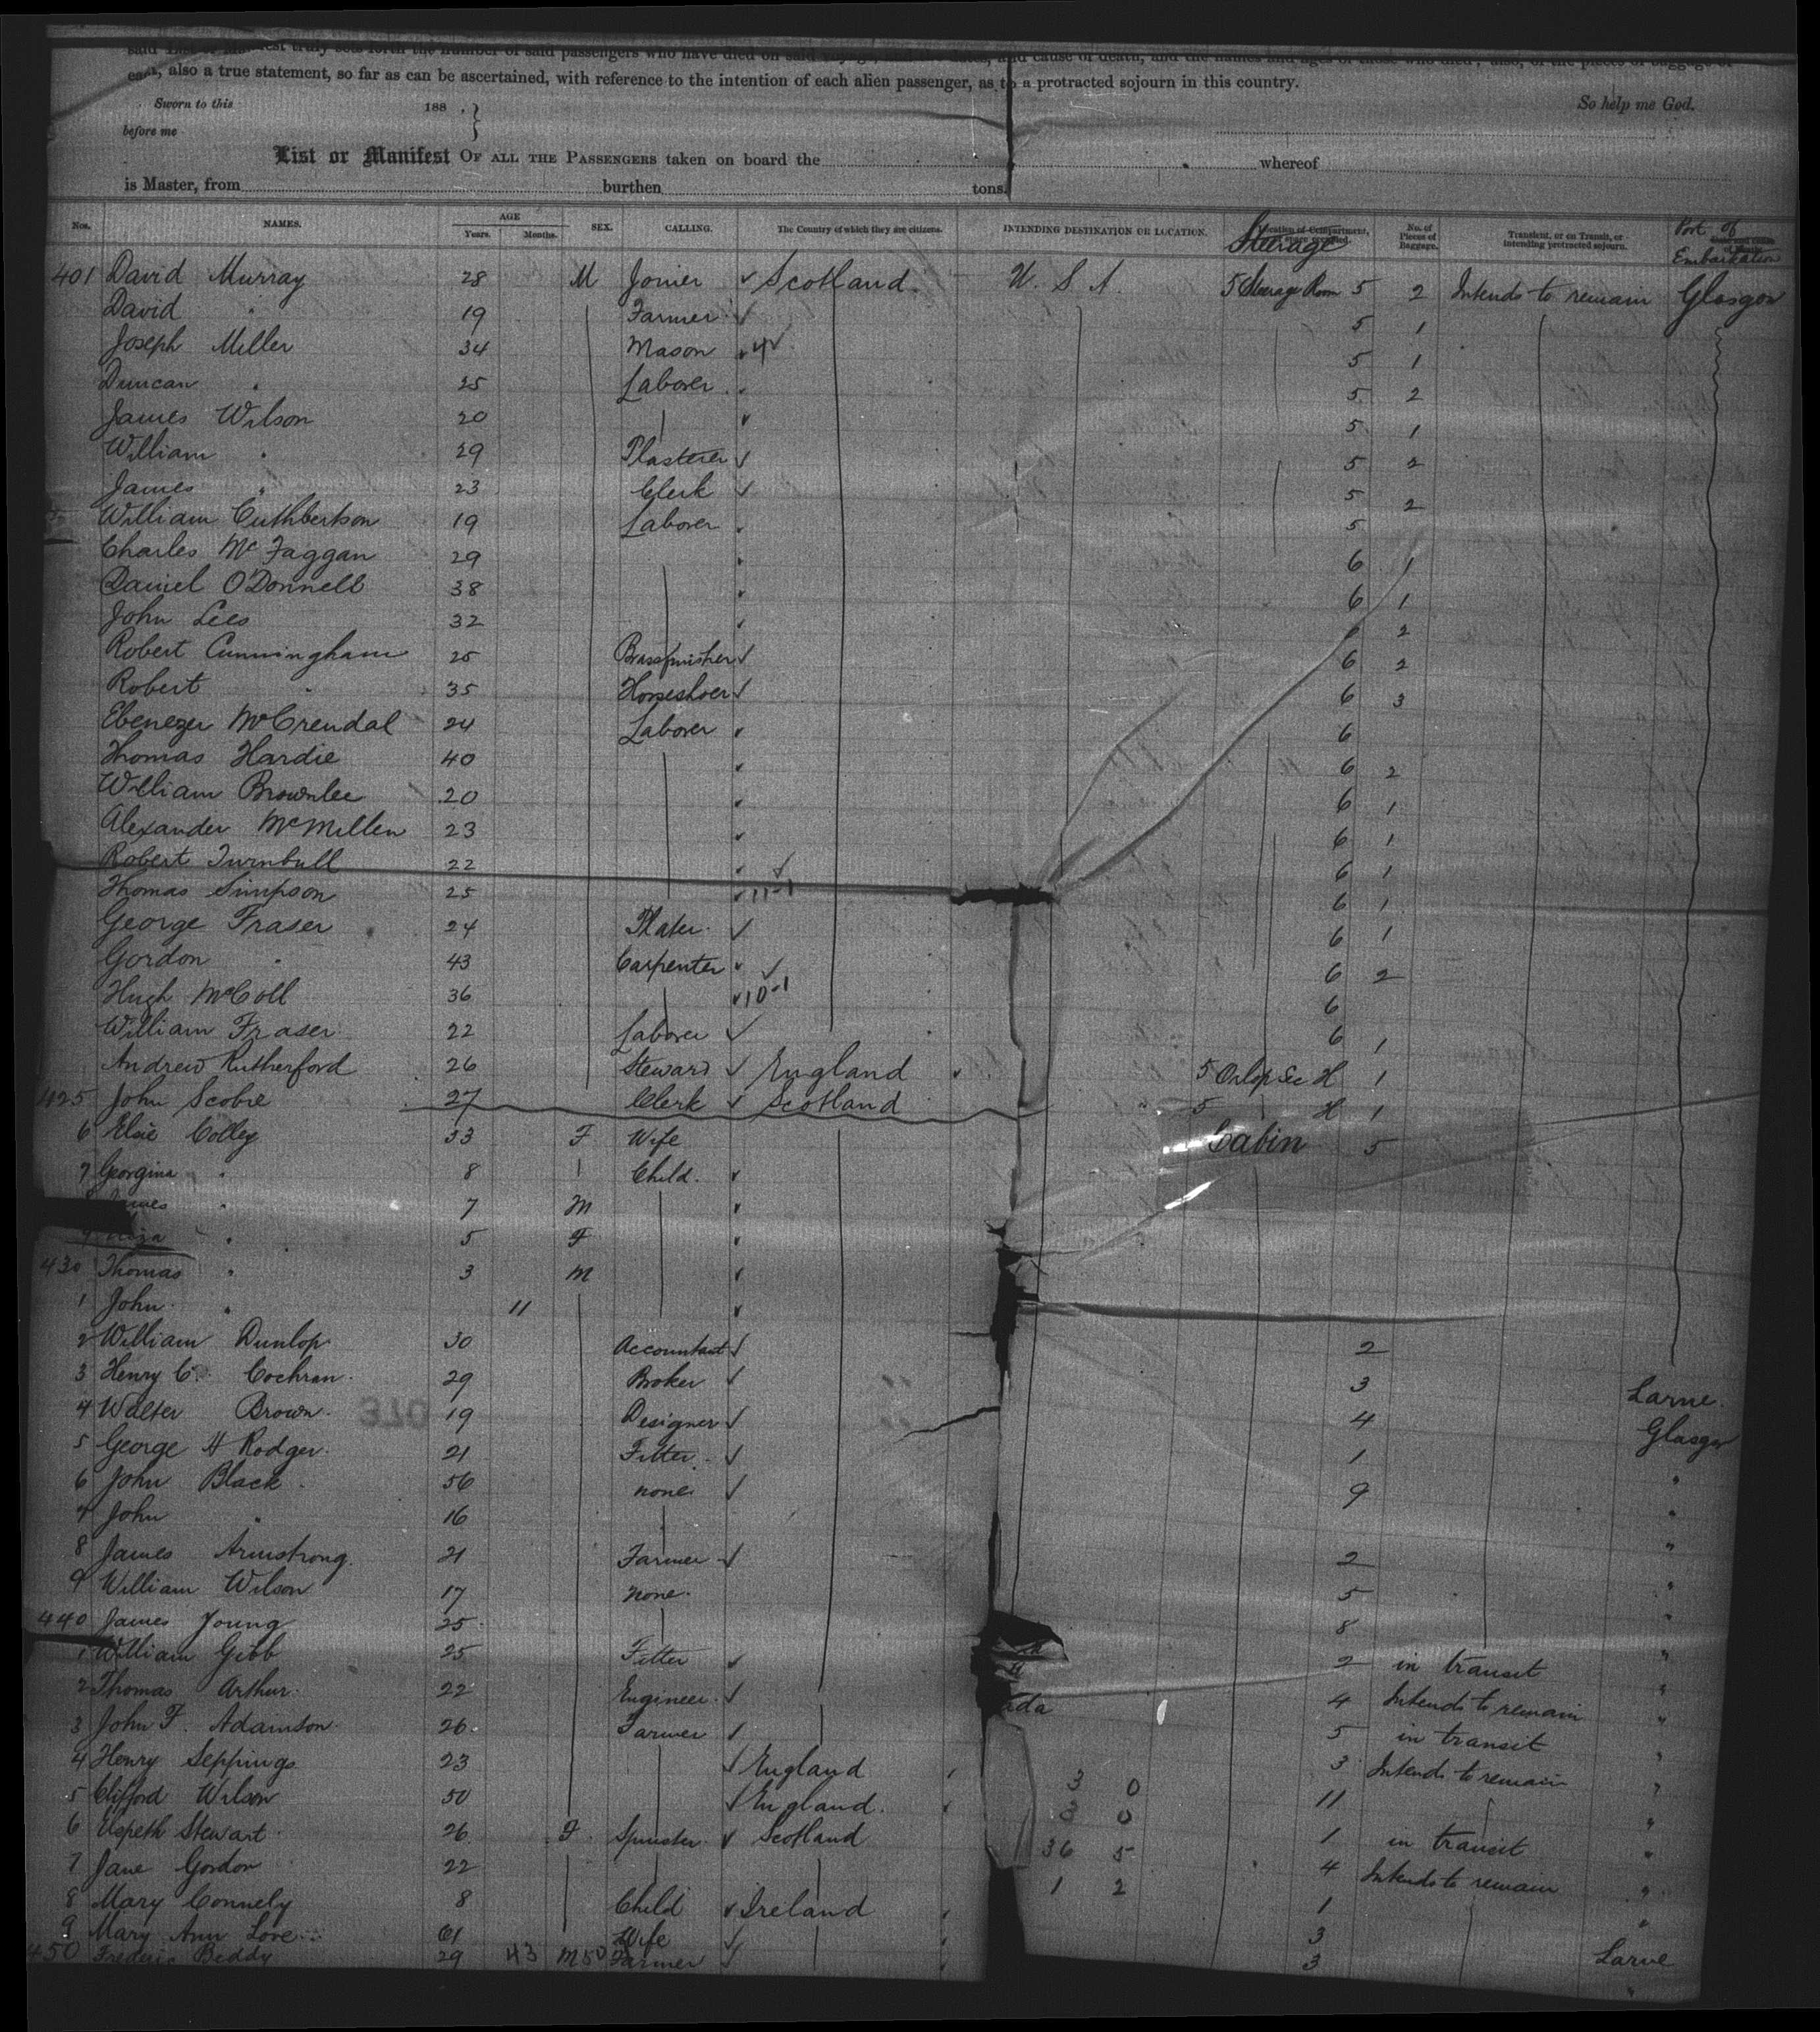 said List or Manifest truly sets forth the number of said passengers who have died on said voyage, and cause of death, and the names and ages of those who died; also, of the pieces of baggage of
each, also a true statement, so far as can be ascertained, with reference to the intention of each alien passenger, as to a protracted sojourn in this country.
Sworn to this 188 . } So help me God.
before me
List or Manifest OF ALL THE PASSENGERS taken on board the whereof
is Master, from burthen tons.
Nos. NAMES. AGE Years. Months. SEX. CALLING. The Country of which they are citizens. INTENDING DESTINATION OR LOCATION. Steerage No. of Pieces of Baggage. Transient, or on Transit, or intending protracted sojourn. Port of Embarkation
401 David Murray 28 M Joiner Scotland U. S. A. 5 Steerage Room 5 2 Intends to remain Glasgow
David " 19 Farmer 5 1
Joseph Miller 34 Mason 5 1
Duncan " 25 Laborer 5 2
James Wilson 20 5 1
William " 29 Plasterer 5 2
James " 23 Clerk 5 2
William Cuthbertson 19 Laborer 5
Charles McFaggan 29 6 1
Daniel O'Donnell 38 6 1
John Lees 32 6 2
Robert Cunningham 25 Brassfinisher 6 2
Robert " 35 Horseshoer 6 3
Ebenezer McCrendal 24 Laborer 6
Thomas Hardie 40 6 2
William Brownlee 20 6 1
Alexander McMillen 23 6 1
Robert Turnbull 22 6 1
Thomas Simpson 25 11-1 6 1
George Fraser 24 Plater 6 1
Gordon " 43 Carpenter 6 2
Hugh McColl 36 10-1 6
William Fraser 22 Laborer 6 1
Andrew Rutherford 26 Steward England 5 Orlop Sec H 1
425 John Scobie 27 Clerk Scotland 5 H 1
6 Elsie Colley 33 F Wife Cabin 5
7 Georgina " 8 Child
" 7 M
9 " 5 F
430 Thomas " 3 M
1 John " 11
2 William Dunlop 30 Accountant 2
3 Henry C. Cochran 29 Broker 3 Larne
4 Walter Brown 19 Designer 4 Glasgow
5 George H Rodger 21 Fitter 1 "
6 John Black 56 none 9 "
7 John " 16 "
8 James Armstrong 21 Farmer 2 "
9 William Wilson 17 none 5 "
440 James Young 25 8 "
1 William Gibb 25 Fitter 2 in transit "
2 Thomas Arthur 22 Engineer ada 4 Intends to remain "
3 John F. Adamson 26 Farmer 5 in transit "
4 Henry Seppings 23 England 3 0 3 Intends to remain "
5 Clifford Wilson 50 England 3 0 11 "
6 Elspeth Stewart 26 F Spinster Scotland 36 5 1 in transit "
7 Jane Gordon 22 1 2 4 Intends to remain "
8 Mary Connely 8 Child Ireland 1 "
9 Mary Ann Love 61 Wife 3 Larne
450 Frederic Beddy 29 43 M 50 Farmer 3 "